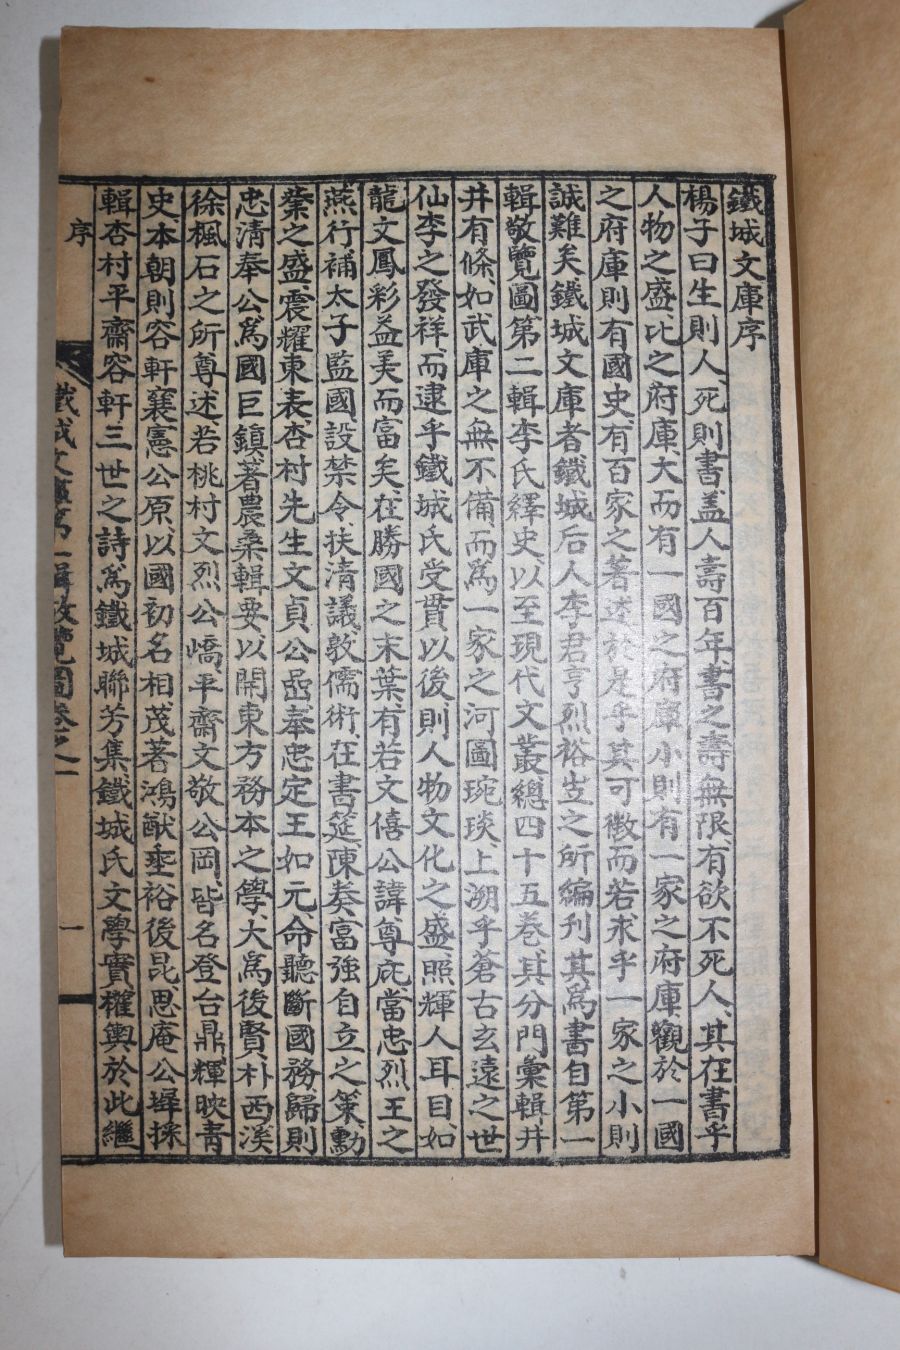 鐵城文庫序
楊子曰生則人、死則書、盖人壽百年、書之壽無限、有欲不死人、其在書乎
人物之盛、比之府庫、大而有一國之府庫、小則有一家之府庫、觀於一國
之府庫、則有國史、有百家之著述、於是乎其可徵、而若求乎一家之小則
誠難矣、鐵城文庫者、鐵城后人李君亨烈裕岦之所編刊、其爲書自第一
輯敬覽圖、第二輯李氏繹史、以至現代文叢、總四十五卷、其分門彙輯、井
井有條、如武庫之無不備、而爲一家之河圖琬琰、上溯乎蒼古玄遠之世
仙李之發祥、而逮乎鐵城氏受貫以後、則人物文化之盛、照輝人耳目、如
龍文鳳彩、益美而富矣、在勝國之末葉、有若文僖公諱尊庇、當忠烈王之
燕行、補太子監國、設禁令、扶清議、敦儒術、在書筵陳奏富強自立之策、勳
業之盛、震耀東表、杏村先生文貞公嵒、奉忠定王如元、命聽斷國務、歸則
忠淸奉公、爲國巨鎭、著農桑輯要、以開東方務本之學、大爲後賢朴西溪
徐楓石之所尊述、若桃村文烈公嶠、平齋文敬公岡、皆名登台鼎、輝映靑
史、本朝則容軒襄憲公原、以國初名相、茂著鴻猷、垂裕後昆、思庵公墀、採
輯杏村平齋容軒三世之詩、爲鐵城聯芳集、鐵城氏文學、實權輿於此、繼
序
鐵城文庫第一輯敬覽圖卷之一
一